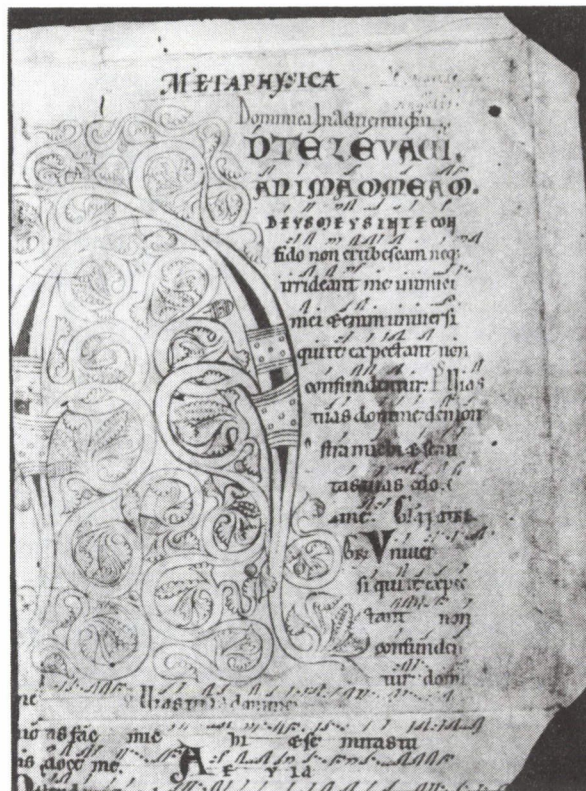 METAPHYSICA
Dominica in aduentu
D TE LEVAVI.
ANIMAM MEAM.
DEUS MEUS IN TE CON
fido non erubescam neq;
irrideant me inimici
mei & enim uniuersi
qui te expectant non
confundentur. Ps Vias
tuas domine demon
stra michi & semi
tas tuas edo.
me. Gla
Gr. Vniuer
si qui te expec
tant non
confunden
tur domi
ne Vias tuas domine
no as fac mic hi & se mitas tu
as doce me. A E VIA